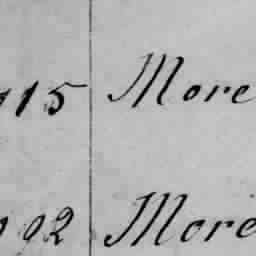 115 More
192 More